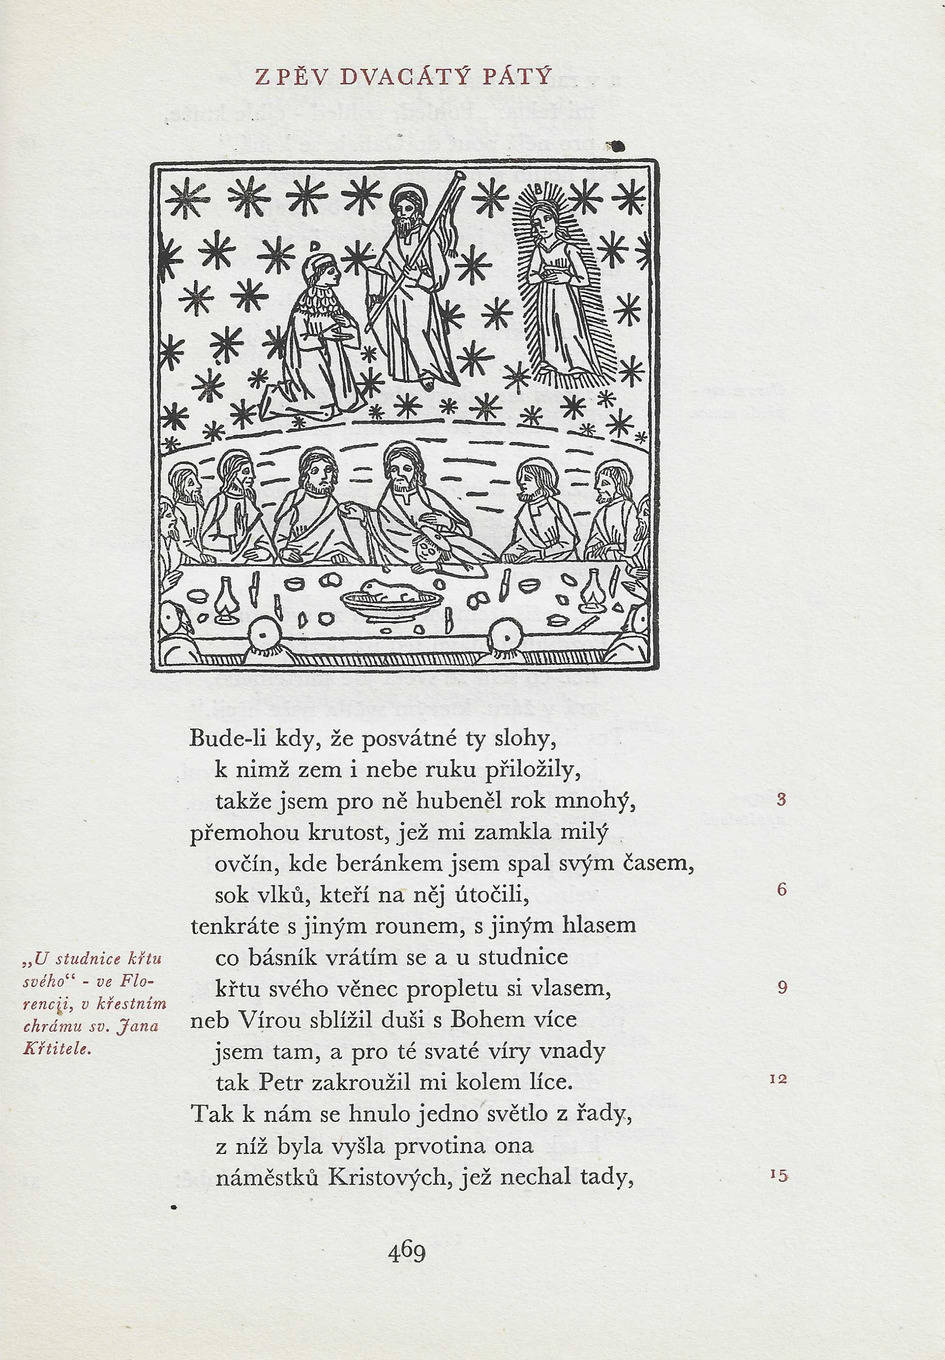 ZPĚV DVACÁTÝ PÁTÝ
D
B
Bude-li kdy, že posvátné ty slohy,
k nimž zem i nebe ruku přiložily,
takže jsem pro ně hubeněl rok mnohý, 3
přemohou krutost, jež mi zamkla milý
ovčín, kde beránkem jsem spal svým časem,
sok vlků, kteří na něj útočili, 6
tenkráte s jiným rounem, s jiným hlasem
co básník vrátím se a u studnice
křtu svého věnec propletu si vlasem, 9
neb Vírou sblížil duši s Bohem více
jsem tam, a pro té svaté víry vnady
tak Petr zakroužil mi kolem líce. 12
Tak k nám se hnulo jedno světlo z řady,
z níž byla vyšla prvotina ona
náměstků Kristových, jež nechal tady, 15
„U studnice křtu
svého“ - ve Flo-
rencii, v křestním
chrámu sv. Jana
Křtitele.
469